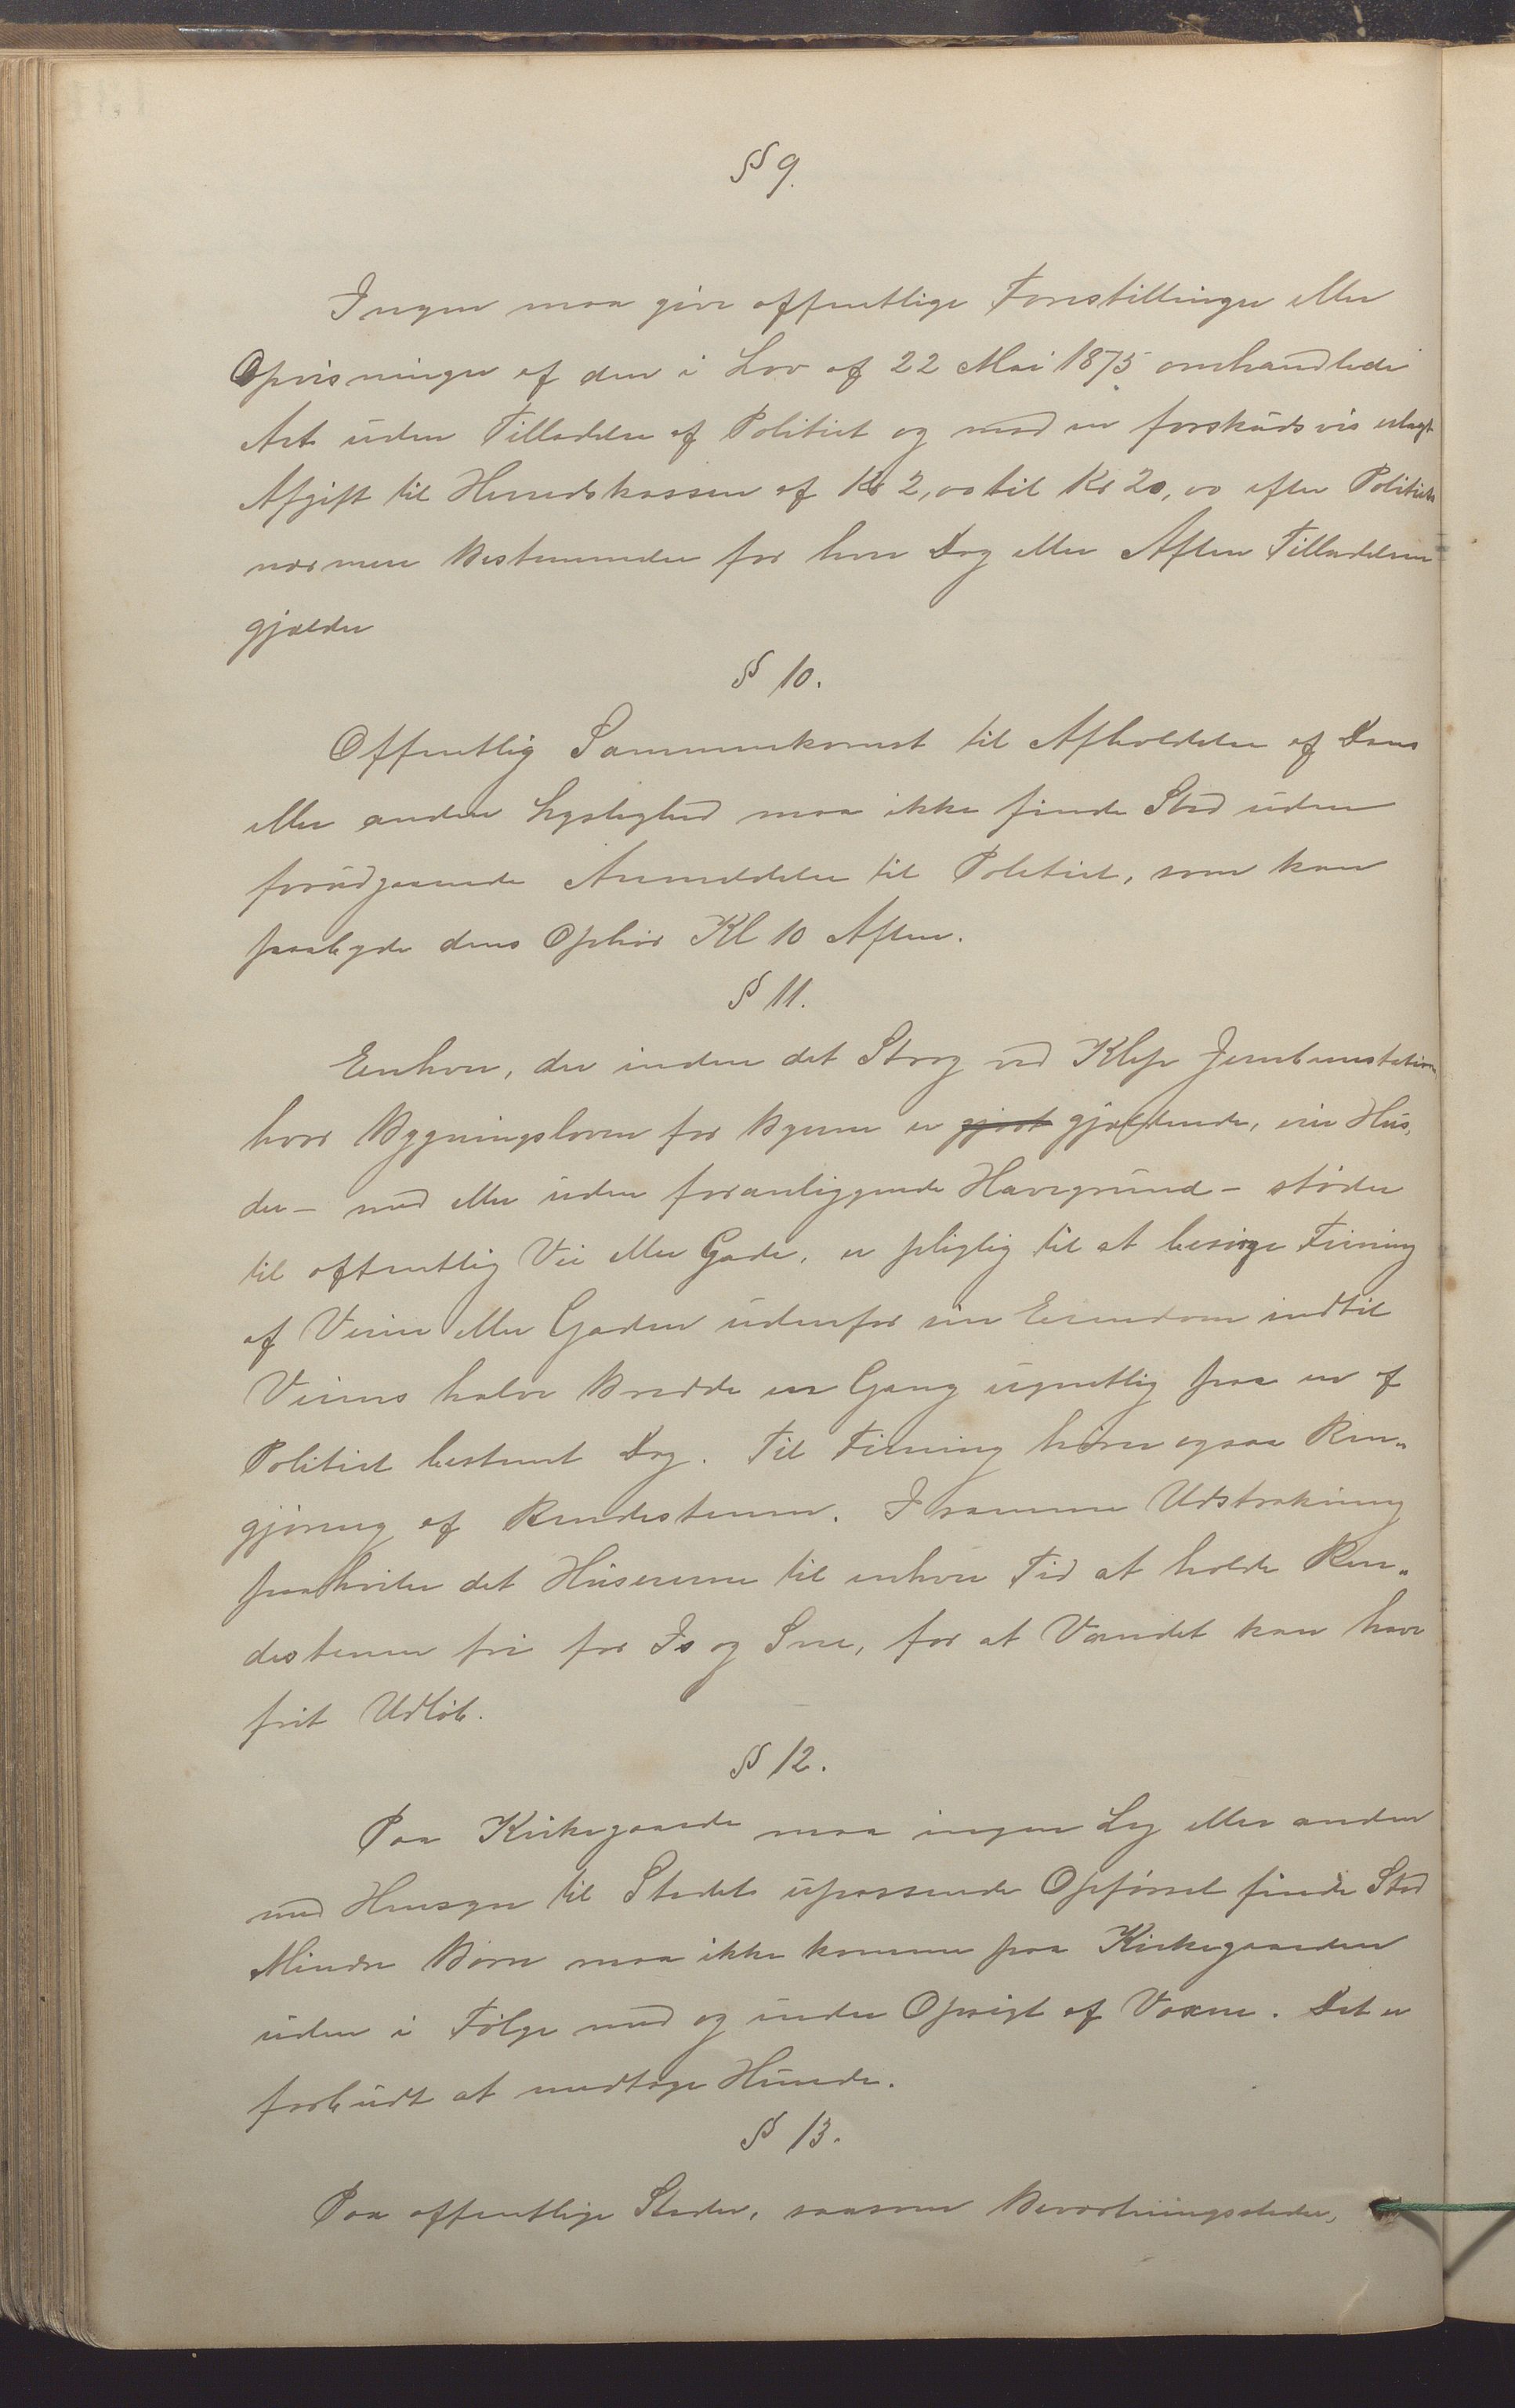 § 9.
Ingen maa give offentlige Forestillinger eller
Opvisninger af den i Lov af 22 Mai 1875 omhandlede
Art uden Tilladelse af Politiet og mod en forskudsvis erlagt
Afgift til Herredskassen af Kr 2,00 til Kr 20,00 efter Politiets
nærmere Bestemmelse for hver Dag eller Aften Tilladelsen
gjælder
§ 10.
Offentlig Sammenkomst til Afholdelse af Dans
eller anden Lystighed maa ikke finde Sted uden
forudgaaende Anmeldelse til Politiet, som kan
paabyde dens Ophør Kl 10 Aften.
§ 11.
Enhver, der inden det Strøg ved Klep Jernbanestation
hvor Bygningsloven for Byerne er gjort gjældende, eier Hus,
der – med eller uden foranliggende Havegrund – støder
til offentlig Vei eller Gade, er pligtig til at besørge Feining
af Veien eller Gaden udenfor sin Eiendom indtil
Veiens halve Bredde en Gang ugentlig paa en af
Politiet bestemt Dag. Til Feining hører ogsaa Ren„
gjøring af Rendestenen. I samme Udstrækning
paahviler det Huseierne til enhver Tid at holde Ren„
destenen fri for Is og Sne, for at Vandet kan have
frit Udløb.
§ 12.
Paa Kirkegaarde maa ingen Leg eller anden
med Hensyn til Stedet upassende Opførsel finde Sted
Mindre Børn maa ikke komme paa Kirkegaarden
uden i Følge med og under Opsigt af Voxne. Det er
forbudt at medtage Hunde.
§ 13.
Paa offentlige Steder, saasom Beværtningssteder,